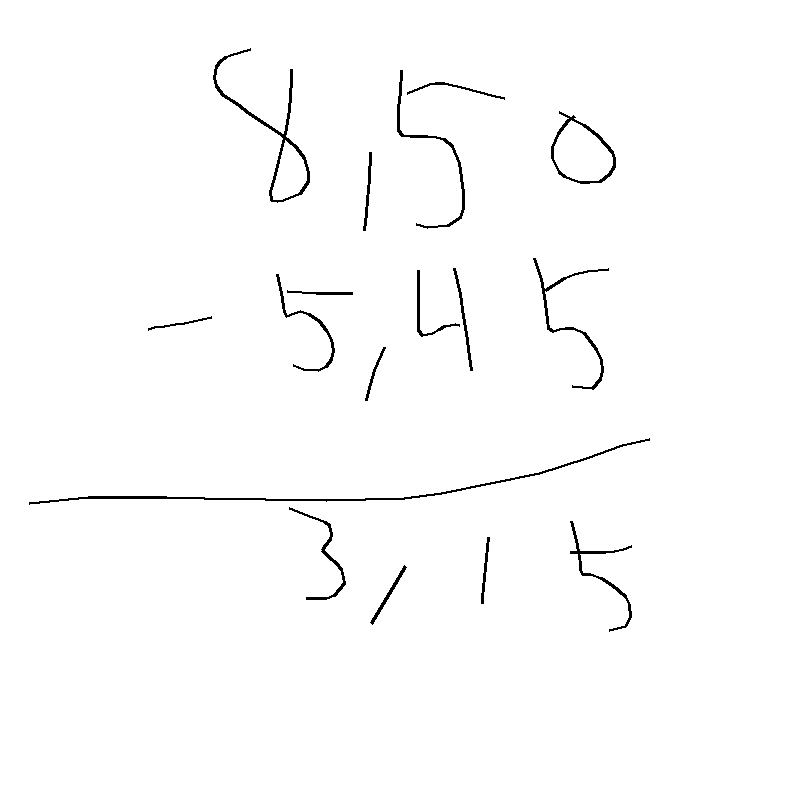 8,50
- 5,45
3,15